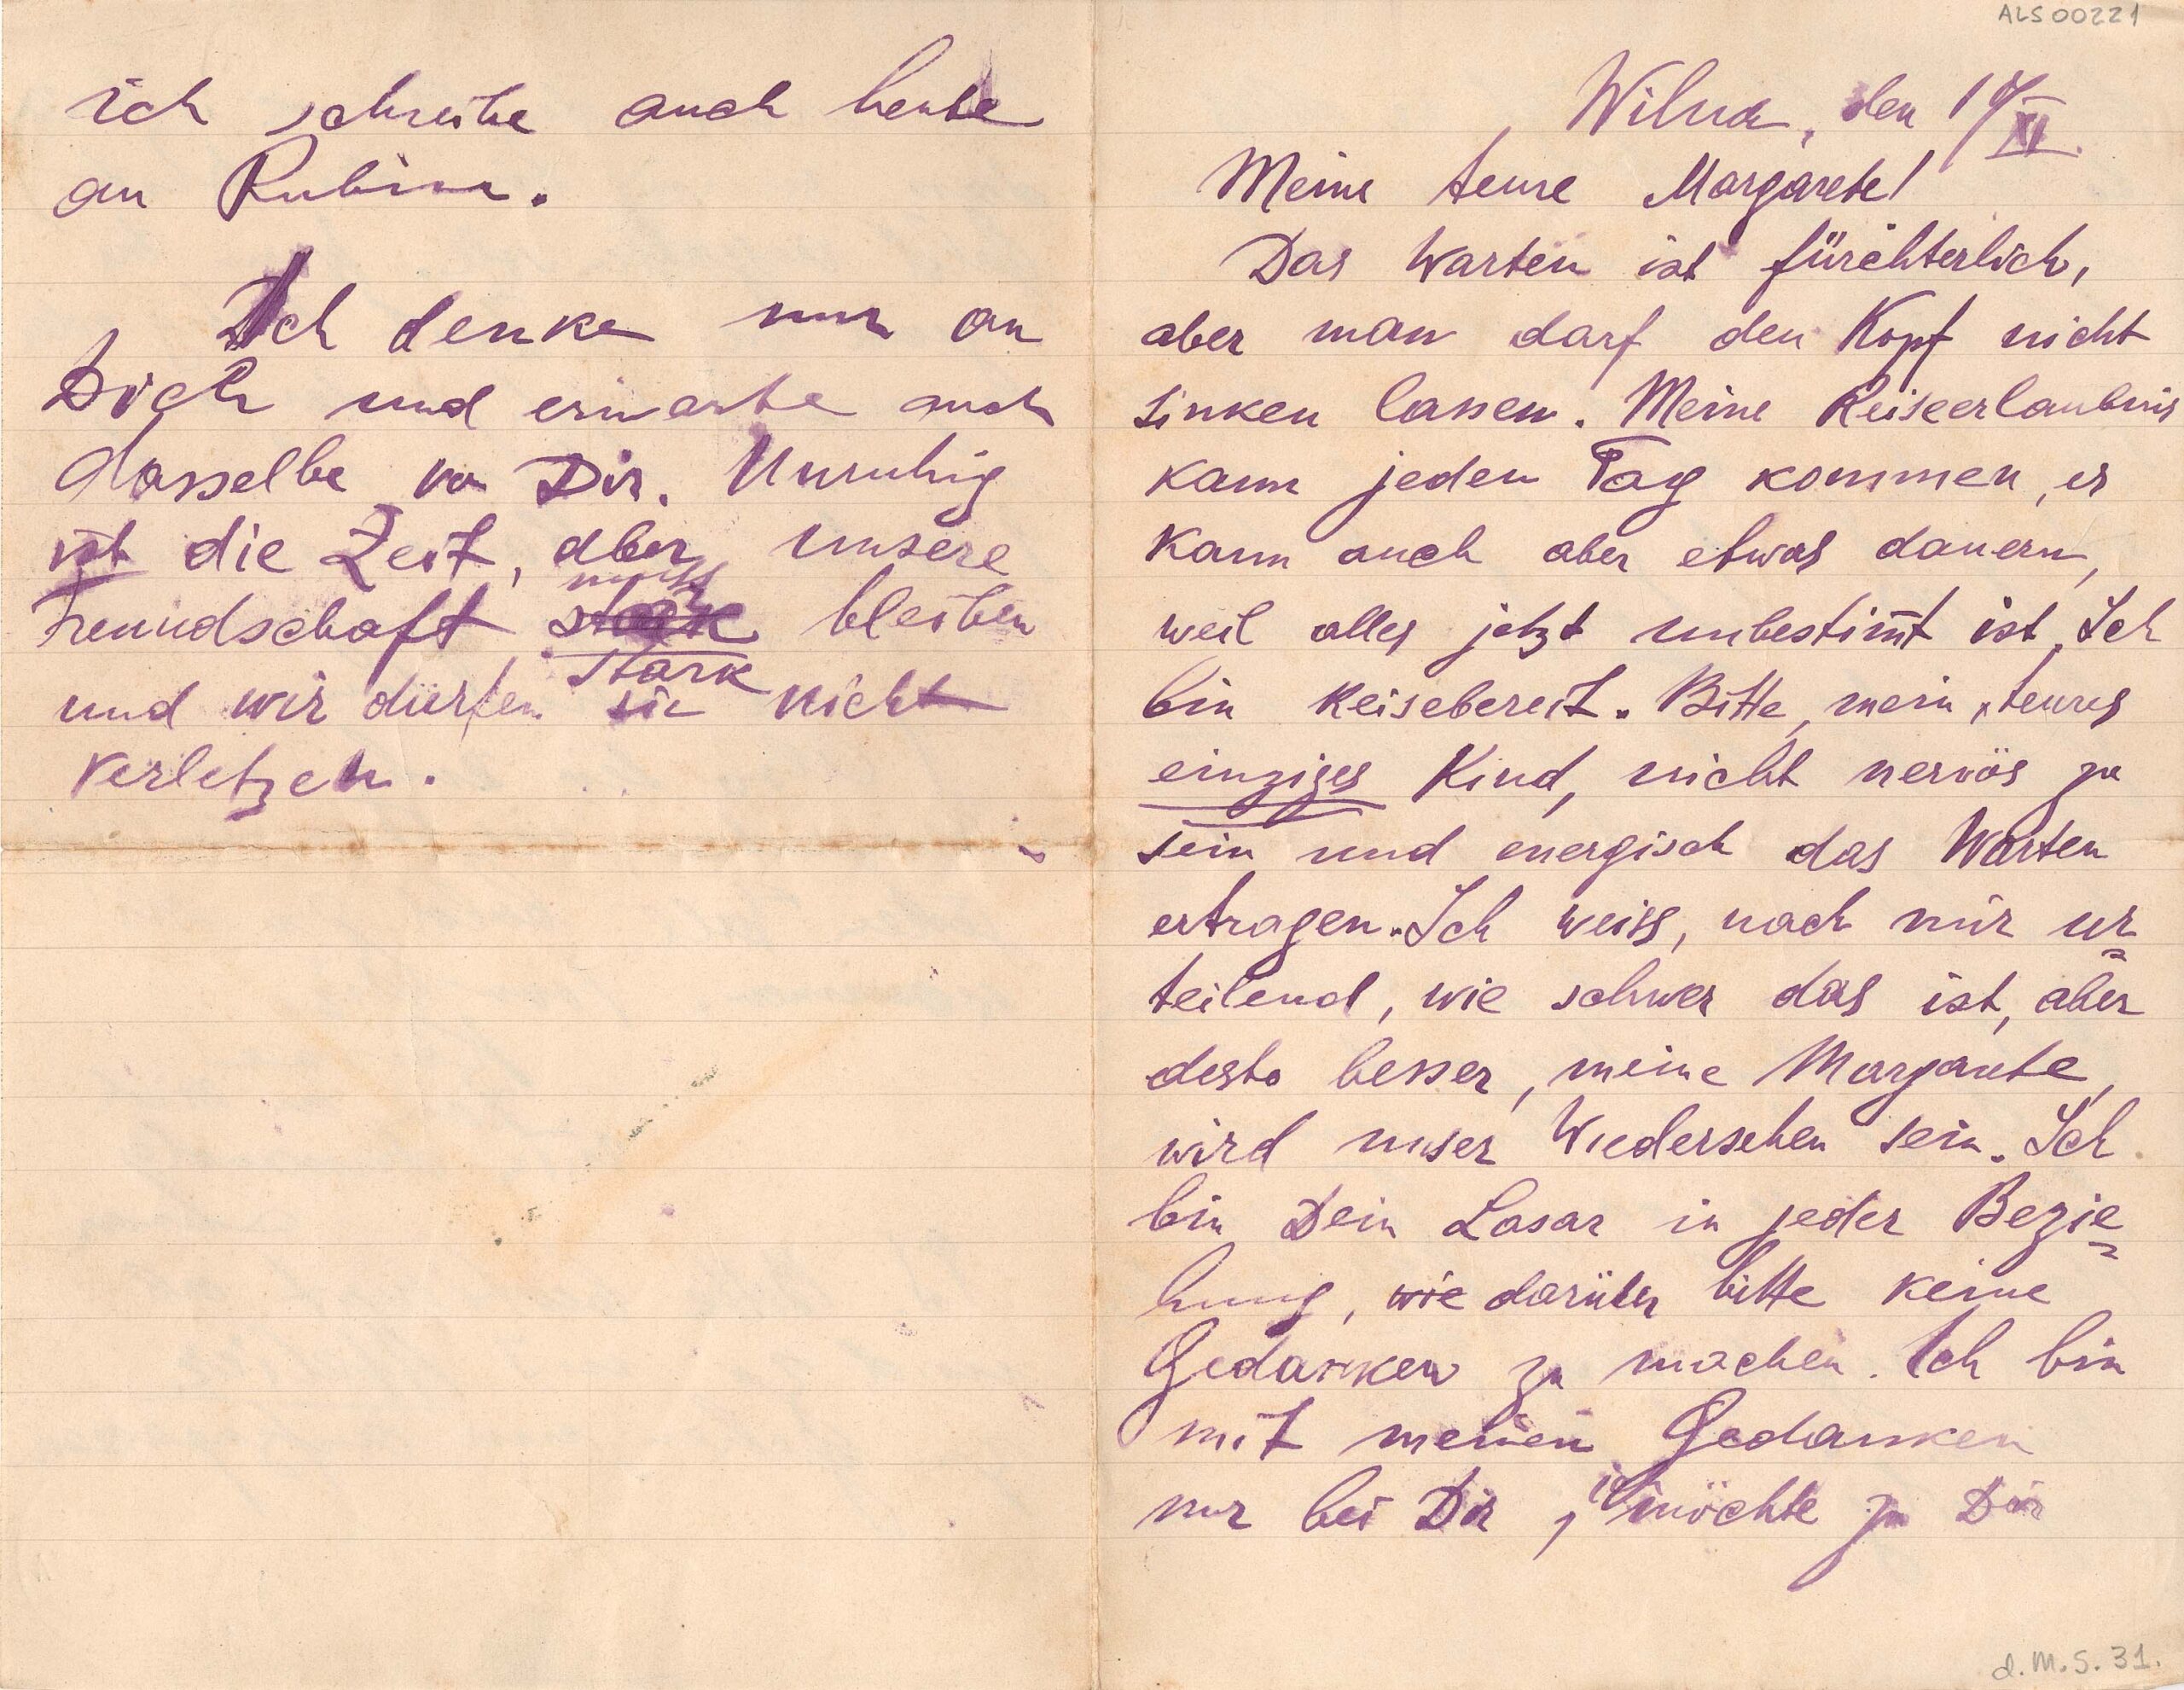 ALS00221
ich schreibe auch heute
an Rubin.
Ich denke nur an
Dich und erwarte auch
dasselbe von Dir. Unruhig
ist die Zeit, aber unsere
Freundschaft muss bleiben
stark
und wir dürfen sie nicht
verletzen.
Wilna, den
Meine teure Margarete!
Das Warten ist fürchterlich,
aber man darf den Kopf nicht
sinken lassen. Meine Reiseerlaubnis
kann jeden Tag kommen, es
kann auch aber etwas dauern,
weil alles jetzt unbestim̄t ist. Ich
bin Reisebereit. Bitte, mein teures
einziges Kind, nicht nervös zu
sein und energisch das Warten
ertragen. Ich weiss, nach mir ur=
teilend, wie schwer das ist, aber
desto besser, meine Margarete,
wird unser Wiedersehen sein. Ich
bin Dein Lasar in jeder Bezie=
hung, wie darüber bitte keine
Gedanken zu machen. Ich bin
mit meinen Gedanken
nur bei Dir, ich möchte zu Dir
d.M.S.31.